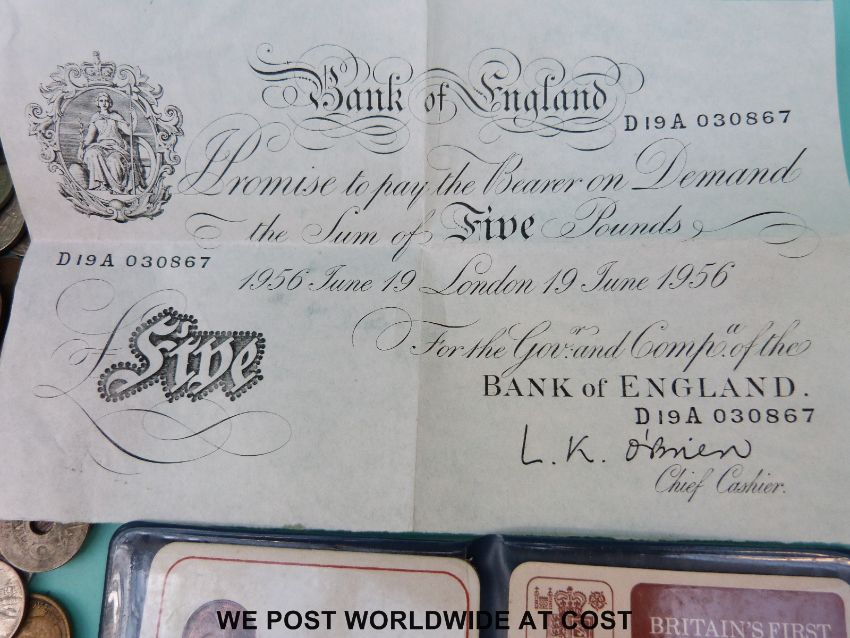 Bank of England
D19A 030867
I Promise to pay the Bearer on Demand
the Sum of Five Pounds
D19A 030867
1956 June 19 London 19 June 1956
£ Five
For the Govr. and Compa. of the
BANK of ENGLAND.
D19A 030867
L. K. O'Brien
Chief Cashier.
BRITAIN'S FIRST
WE POST WORLDWIDE AT COST